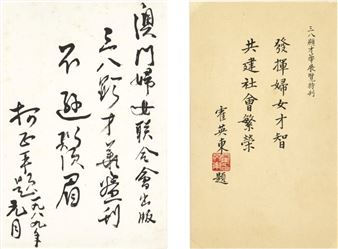 澳門婦女聯合會出版
三八顯才華藝刊
不遜鬚眉
柯正平題
一九八九年
元月
三八顯才華展覽特刊
發揮婦女才智
共建社會繁榮
霍英東
題